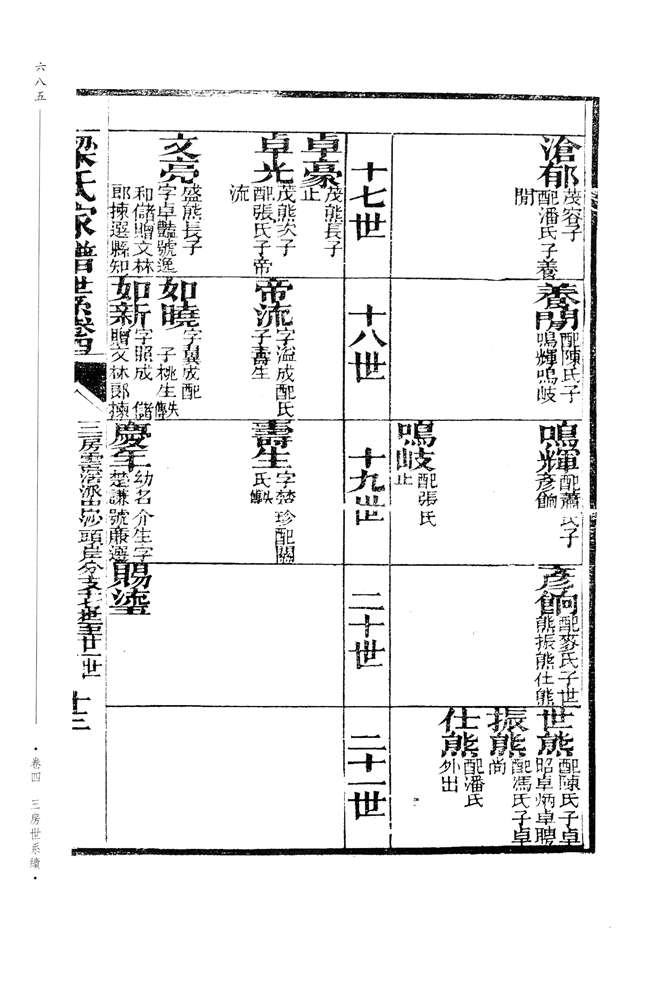 滄郁
茂容子
配潘氏子養
閒
養閒
配陳氏子
鳴輝鳴岐
鳴輝
配蕭氏子
彥餉
鳴岐
配張氏
止
彥餉
配麥氏子世
熊振熊仕熊
世熊
配陳氏子卓
昭卓炳卓聘
振熊
配馮氏子卓
尚
仕熊
配潘氏
外出
十七世
十八世
十九世
二十世
二十一世
卓豪
茂熊長子
止
卓光
茂熊次子
配張氏子帝
流
文亮
盛熊長子
字卓豔號逸
和儲贈文林
郎揀選縣知
帝流
字溢成配氏
子壽生
如曉
字翼成配
子桃生
如新
字照成 儲
贈文林郎揀
壽生
字楚珍配關
氏
慶年
幼名介生字
楚謙號廉選
賜瑬
梁氏家譜世系卷四
三房雲涝派出莎頭岸分支十七世至廿一世
十三
六八五
·卷四 三房世系續·